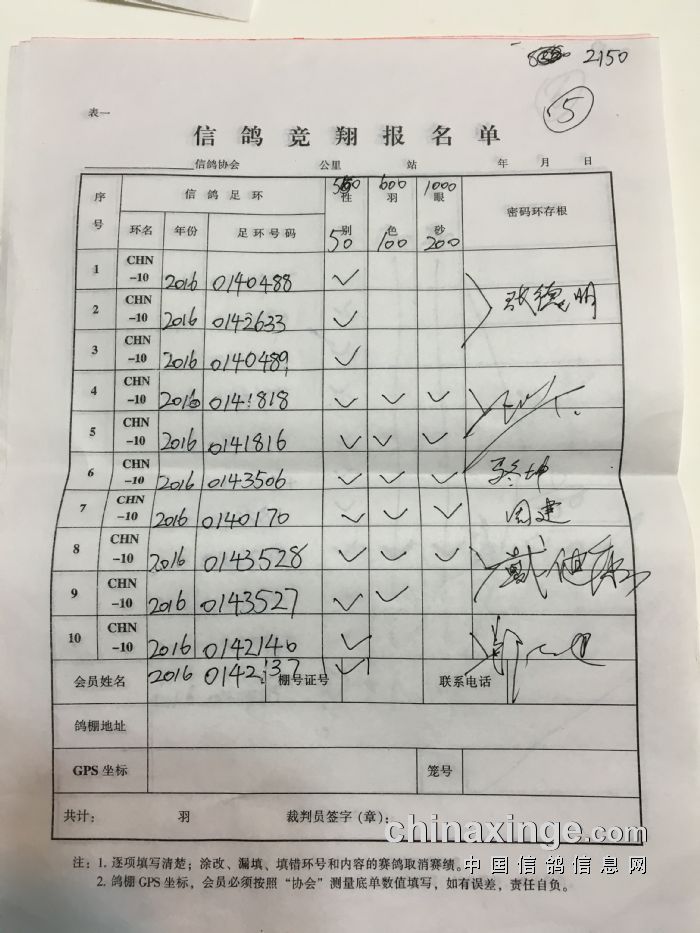 2150
表一
5
信鸽竞翔报名单
信鸽协会 公里 站 年 月 日
序号 信鸽足环 性别 羽色 眼砂 密码环存根
600 1000
环名 年份 足环号码 50 100 200
1 CHN-10 2016 0140488 ✓
2 CHN-10 2016 0142633 ✓ 张德明
3 CHN-10 2016 0140489 ✓
4 CHN-10 2016 0141818 ✓ ✓ ✓
5 CHN-10 2016 0141816 ✓ ✓ ✓
6 CHN-10 2016 0143506 ✓ ✓ ✓
7 CHN-10 2016 0140170 ✓ ✓ ✓ 周建
8 CHN-10 2016 0143528 ✓ ✓ ✓
9 CHN-10 2016 0143527 ✓ ✓
10 CHN-10 2016 0142140 ✓
会员姓名 2016 棚号证号 ✓ 联系电话
鸽棚地址
GPS坐标 笼号
共计: 羽 裁判员签字(章):
chinaxinge.com
注:1. 逐项填写清楚;涂改、漏填、填错环号和内容的赛鸽取消赛绩。
中国信鸽信息网
2. 鸽棚GPS坐标,会员必须按照“协会”测量底单数值填写,如有误差,责任自负。